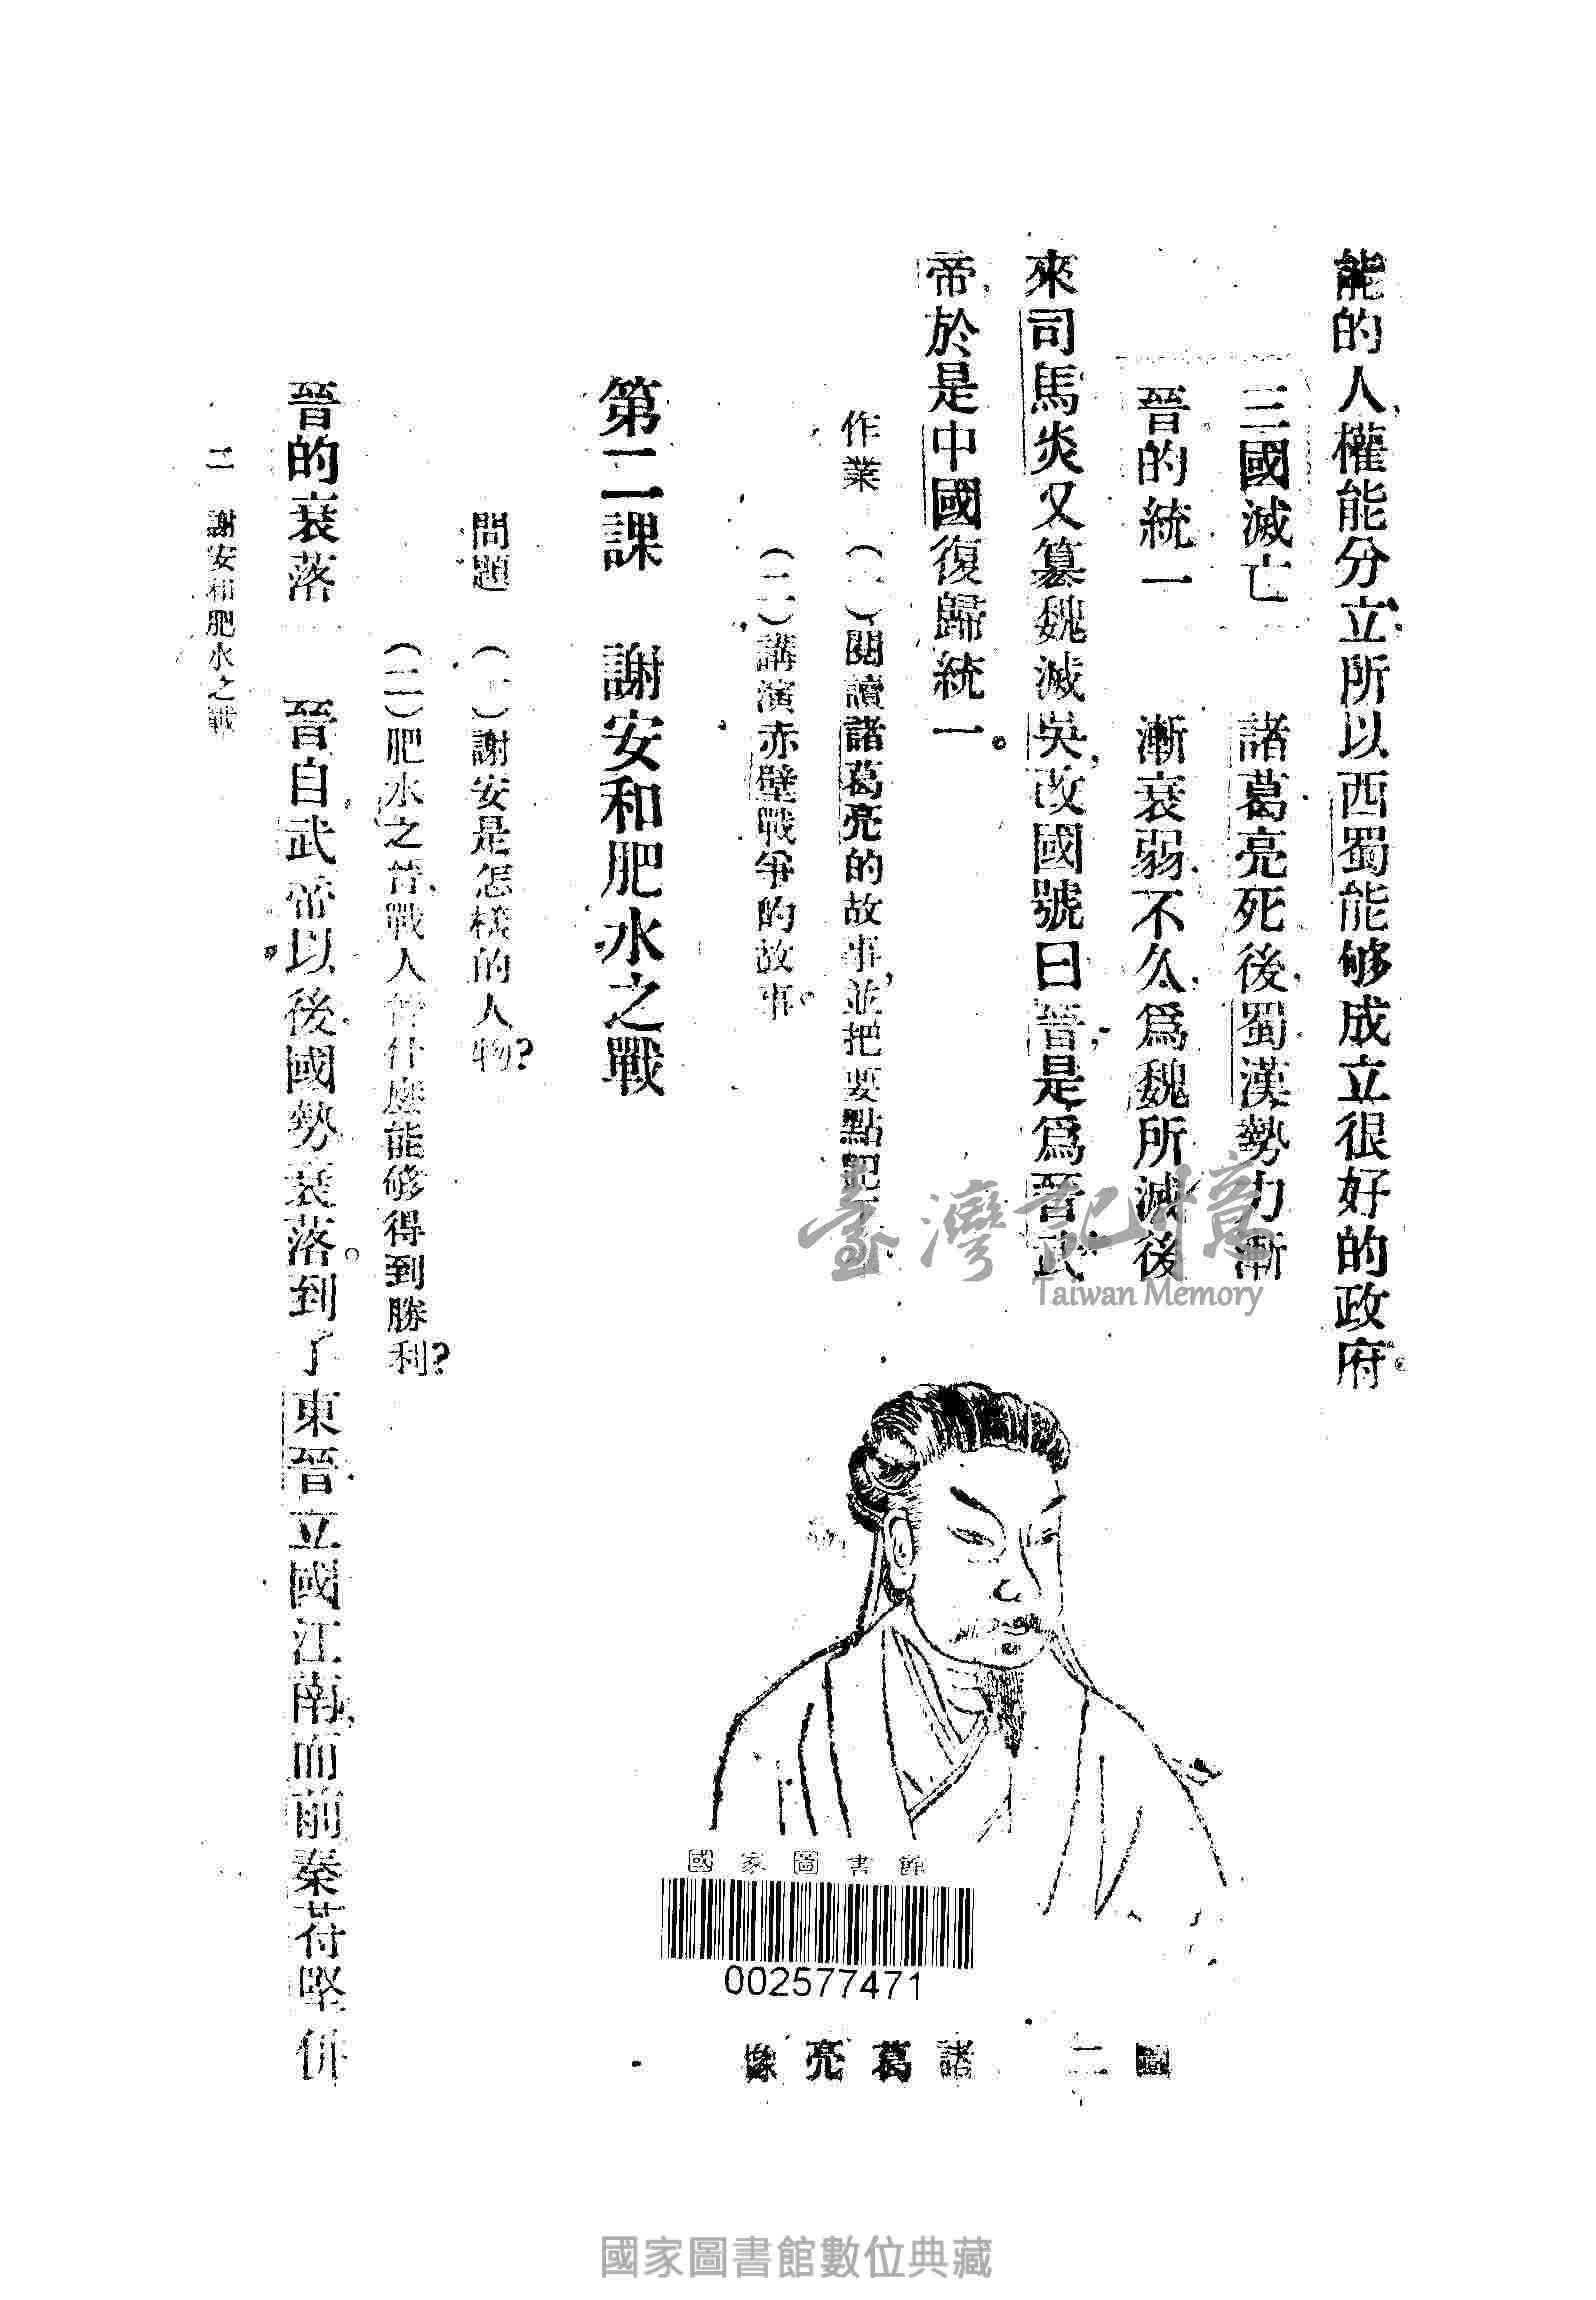 能的人,權能分立,所以西蜀能够成立很好的政府。
三國滅亡
晉的統一
諸葛亮死後,蜀漢勢力漸
漸衰弱,不久,爲魏所滅,後
來司馬炎又篡魏滅吳,改國號曰晉,是爲晉武
帝,於是中國復歸統一。
作業 (一)閱讀諸葛亮的故事,並把要點記下
(二)講演赤壁戰爭的故事。
圖二 諸葛亮像
第二課 謝安和肥水之戰
問題 (一)謝安是怎樣的人物?
(二)肥水之戰,晉人
什麼能够得到勝利?
晉的衰落 晉自武帝以後,國勢衰落。到了東晉,立國江南,而前秦苻堅併
二 謝安和肥水之戰
國家圖書館
002577471
臺灣記憶
Taiwan Memory
國家圖書館數位典藏